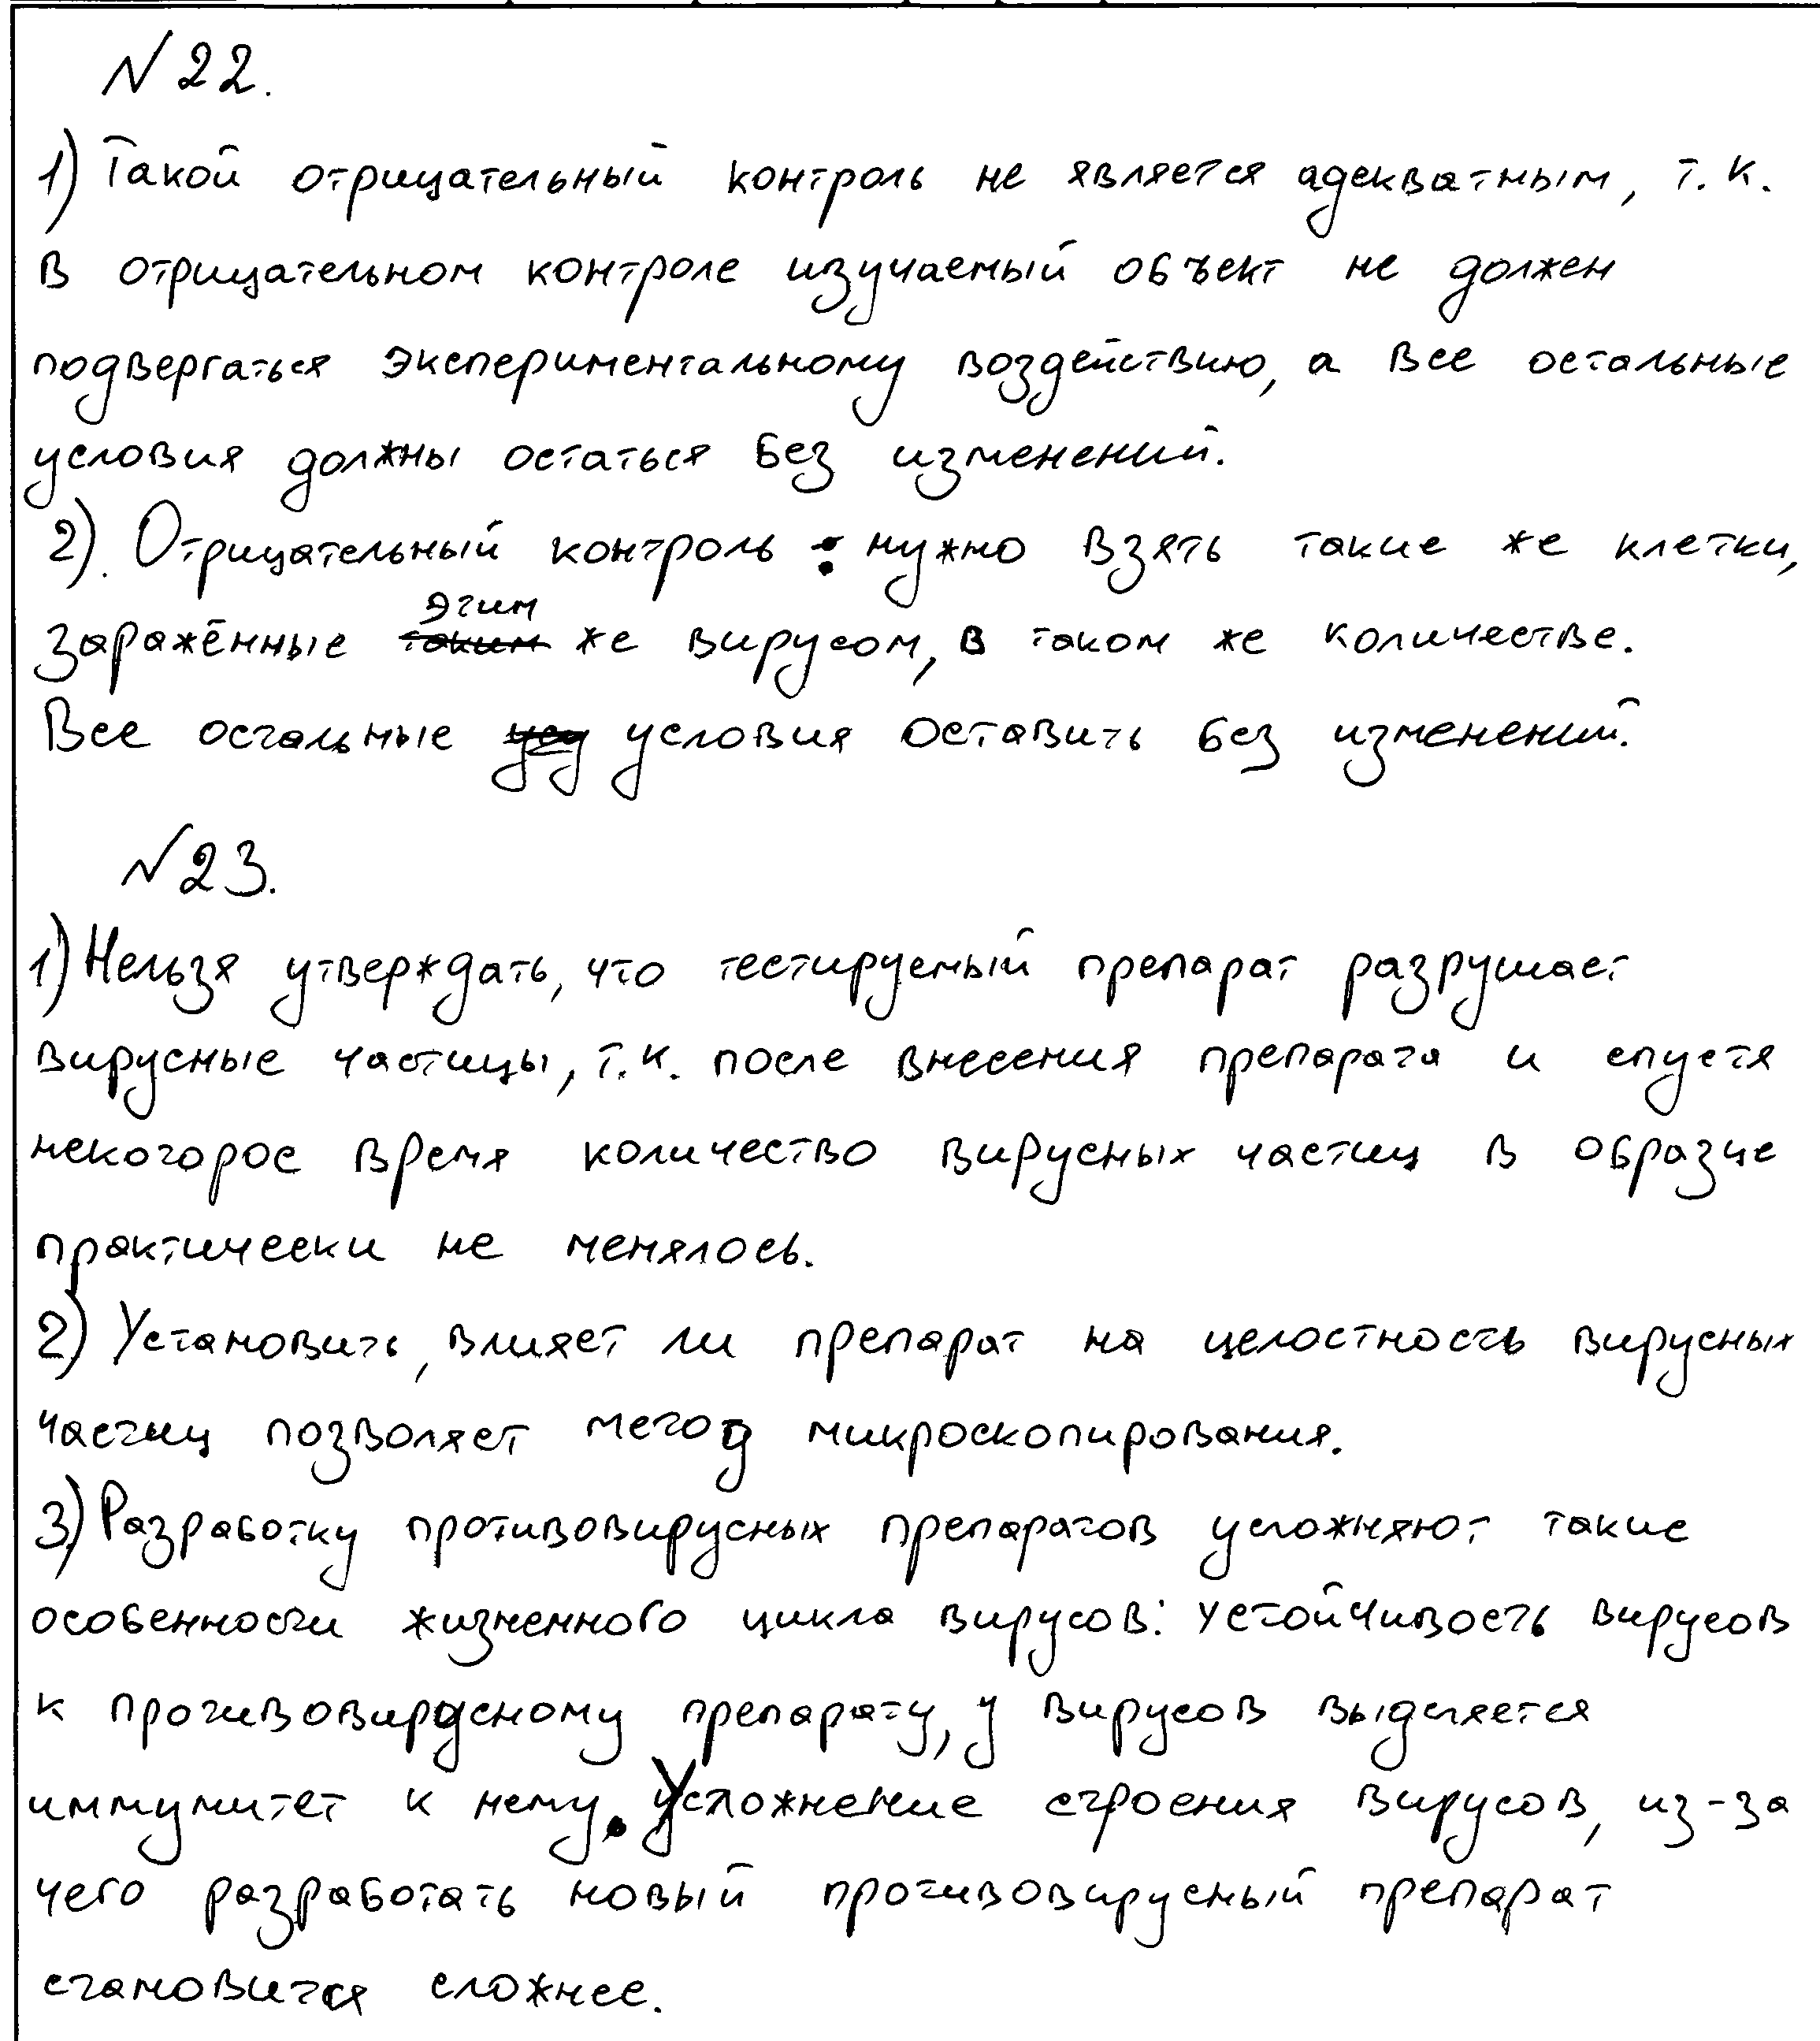 №22.
1) Такой отрицательный контроль не является адекватным, т.к.
в отрицательном контроле изучаемый объект не должен
подвергаться экспериментальному воздействию, а все остальные
условия должны остаться без изменений.
2). Отрицательный контроль: нужно взять такие же клетки,
заражённые этим же вирусом, в таком же количестве.
Все остальные условия оставить без изменений.
№23.
1) Нельзя утверждать, что тестируемый препарат разрушает
вирусные частицы, т.к. после внесения препарата и спустя
некоторое время количество вирусных частиц в образце
практически не менялось.
2) Установить, влияет ли препарат на целостность вирусных
частиц позволяет метод микроскопирования.
3) Разработку противовирусных препаратов усложняют такие
особенности жизненного цикла вирусов: устойчивость вирусов
к противовирусному препарату, у вирусов выделяется
иммунитет к нему. Усложнение строения вирусов, из-за
чего разработать новый противовирусный препарат
становится сложнее.